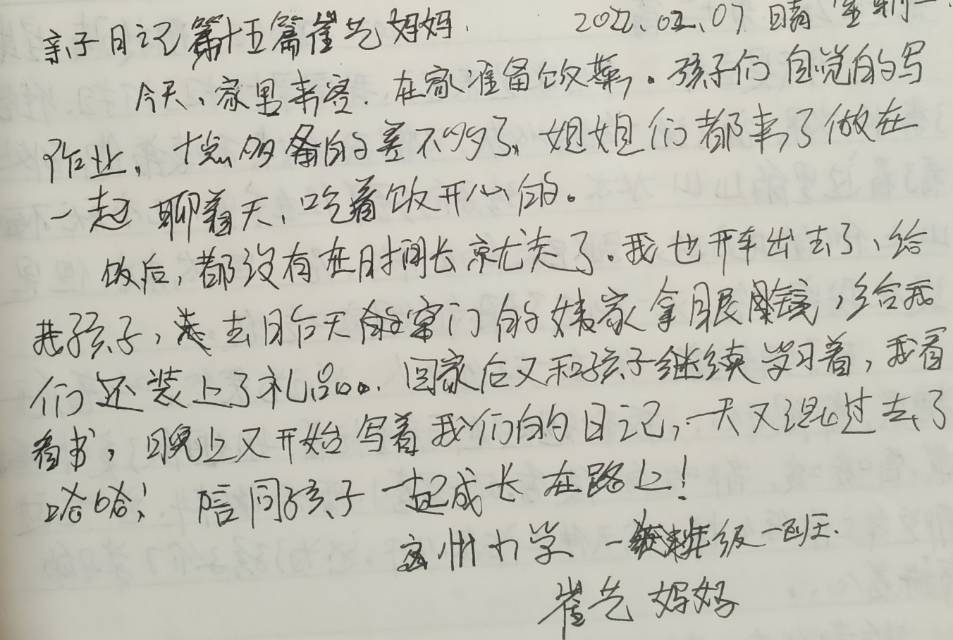 亲子日记第十五篇崔艺妈妈. 2022.02.07 晴 星期一
今天、家里来客. 在家准备饮菜。孩子们自觉的写
作业, 备的差不多了。姐姐们都来了做在
一起聊着天、吃着饮开心的。
饭后, 都没有在时间长就走了。我也开车出去了、给
我孩子, 去日后天的窜门的姨家拿眼镜, 给我
们还装上了礼品。回家后又和孩子继续学习着, 我看
看书, 晚上又开始写着我们的日记, 一天又混过去了
哈哈! 陪同孩子一起成长在路上!
州小学 一年级一班
崔艺妈妈